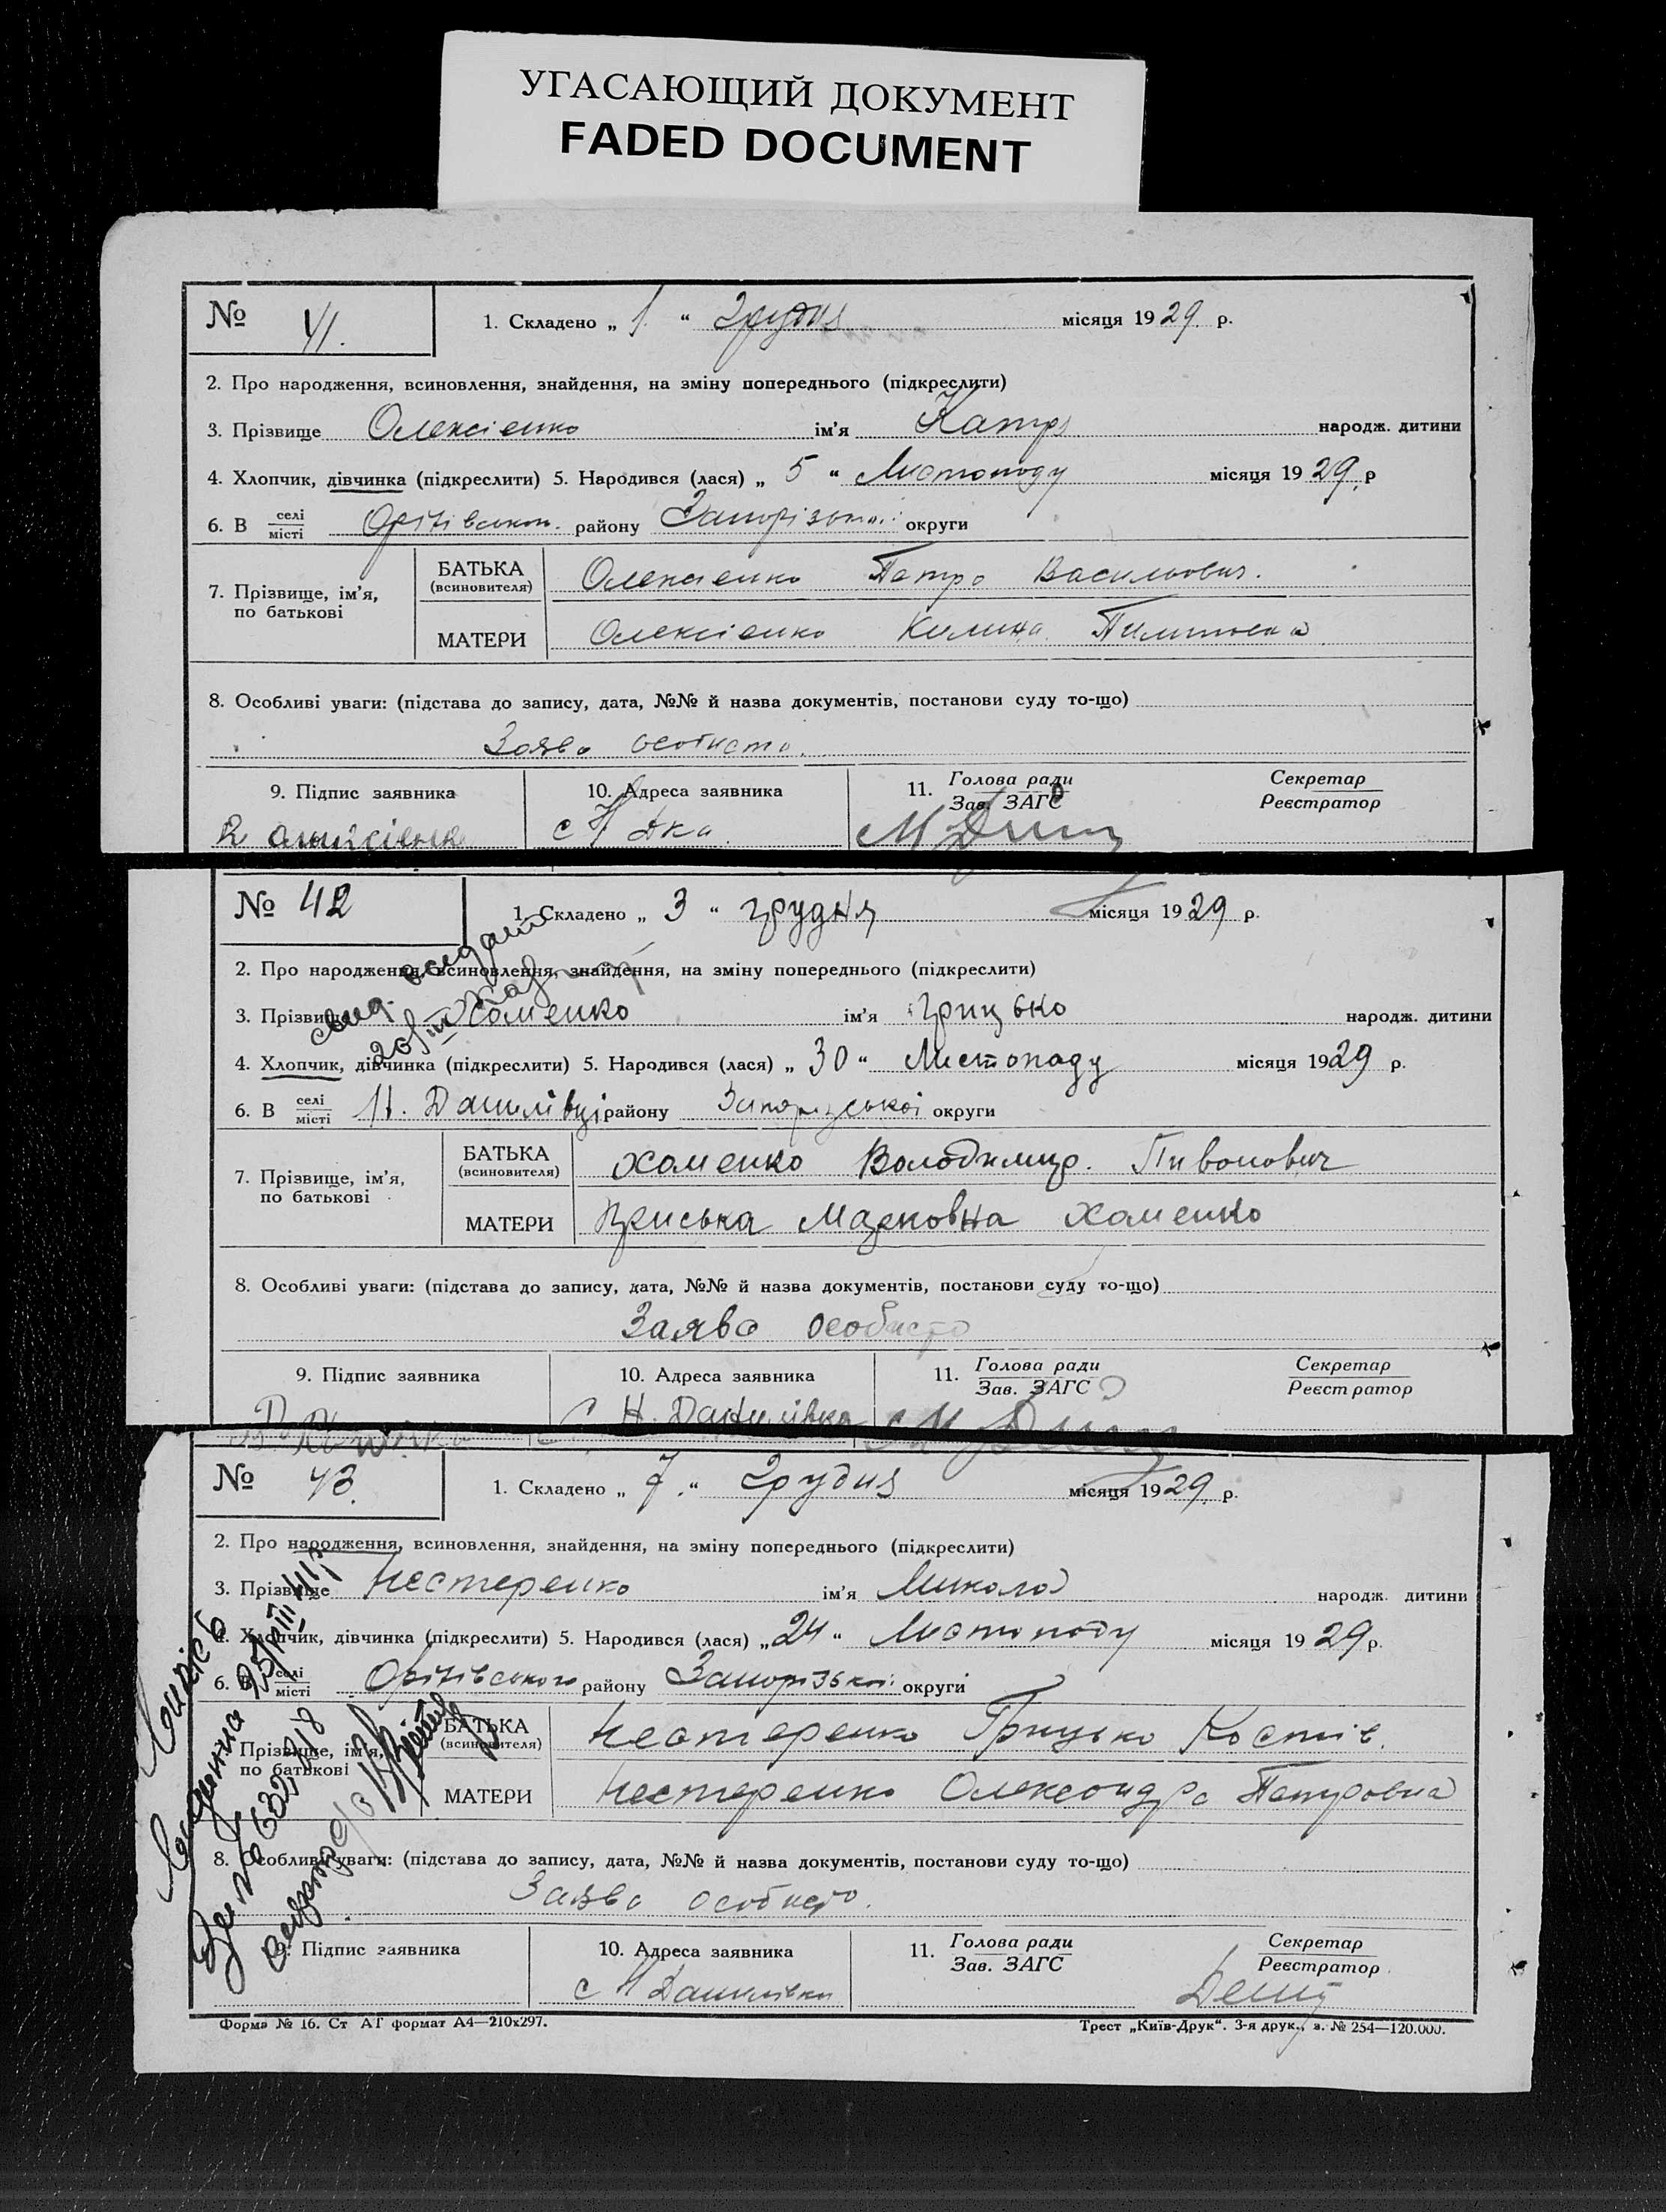 УГАСАЮЩИЙ ДОКУМЕНТ
FADED DOCUMENT
№ 41. 1. Складено „ 1 “ Грудня місяця 1929 р.
2. Про народження, всиновлення, знайдення, на зміну попереднього (підкреслити)
3. Прізвище Олексієнко ім'я Катря народж. дитини
4. Хлопчик, дівчинка (підкреслити) 5. Народився (лася) „ 5 “ Листопаду місяця 1929 р
6. В селі місті Оріхівськ. району Запорізької округи
7. Прізвище, ім'я, по батькові
БАТЬКА (всиновителя) Олексієнко Петро Васильович.
МАТЕРИ Олексієнко Килина
8. Особливі уваги: (підстава до запису, дата, №№ й назва документів, постанови суду то-що)
Заява особисто.
9. Підпис заявника 10. Адреса заявника 11. Голова ради Зав. ЗАГС Секретар Реєстратор
№ 42 1. Складено „ 3 “ грудня місяця 1929 р.
2. Про народження, всиновлення, знайдення, на зміну попереднього (підкреслити)
3. Прізвище Хоменко ім'я Грицько народж. дитини
4. Хлопчик, дівчинка (підкреслити) 5. Народився (лася) „ 30 “ Листопаду місяця 1929 р.
6. В селі місті Н. Данилівці району Запорізської округи
7. Прізвище, ім'я, по батькові
БАТЬКА (всиновителя) Хоменко Володимир. Пивонович
МАТЕРИ Марковна Хоменко
8. Особливі уваги: (підстава до запису, дата, №№ й назва документів, постанови суду то-що)
Заява особисто
9. Підпис заявника 10. Адреса заявника 11. Голова ради Зав. ЗАГС Секретар Реєстратор
С Н. Данилівка
№ 43. 1. Складено „ 7. “ Грудня місяця 1929 р.
2. Про народження, всиновлення, знайдення, на зміну попереднього (підкреслити)
3. Прізвище Нестеренко ім'я Микола народж. дитини
4. Хлопчик, дівчинка (підкреслити) 5. Народився (лася) „ 24 “ Листопаду місяця 1929 р.
6. В селі місті Оріхівського району Запорізької округи
7. Прізвище, ім'я, по батькові
БАТЬКА (всиновителя) Нестеренко Грицько Костів.
МАТЕРИ Нестеренко Олександра Петровна
8. Особливі уваги: (підстава до запису, дата, №№ й назва документів, постанови суду то-що)
Заява особисто.
9. Підпис заявника 10. Адреса заявника 11. Голова ради Зав. ЗАГС Секретар Реєстратор
с Н Данилівка
Форма № 16. Ст АТ формат А4—210x297. Трест „Київ-Друк“. 3-я друк., з. № 254—120.000.